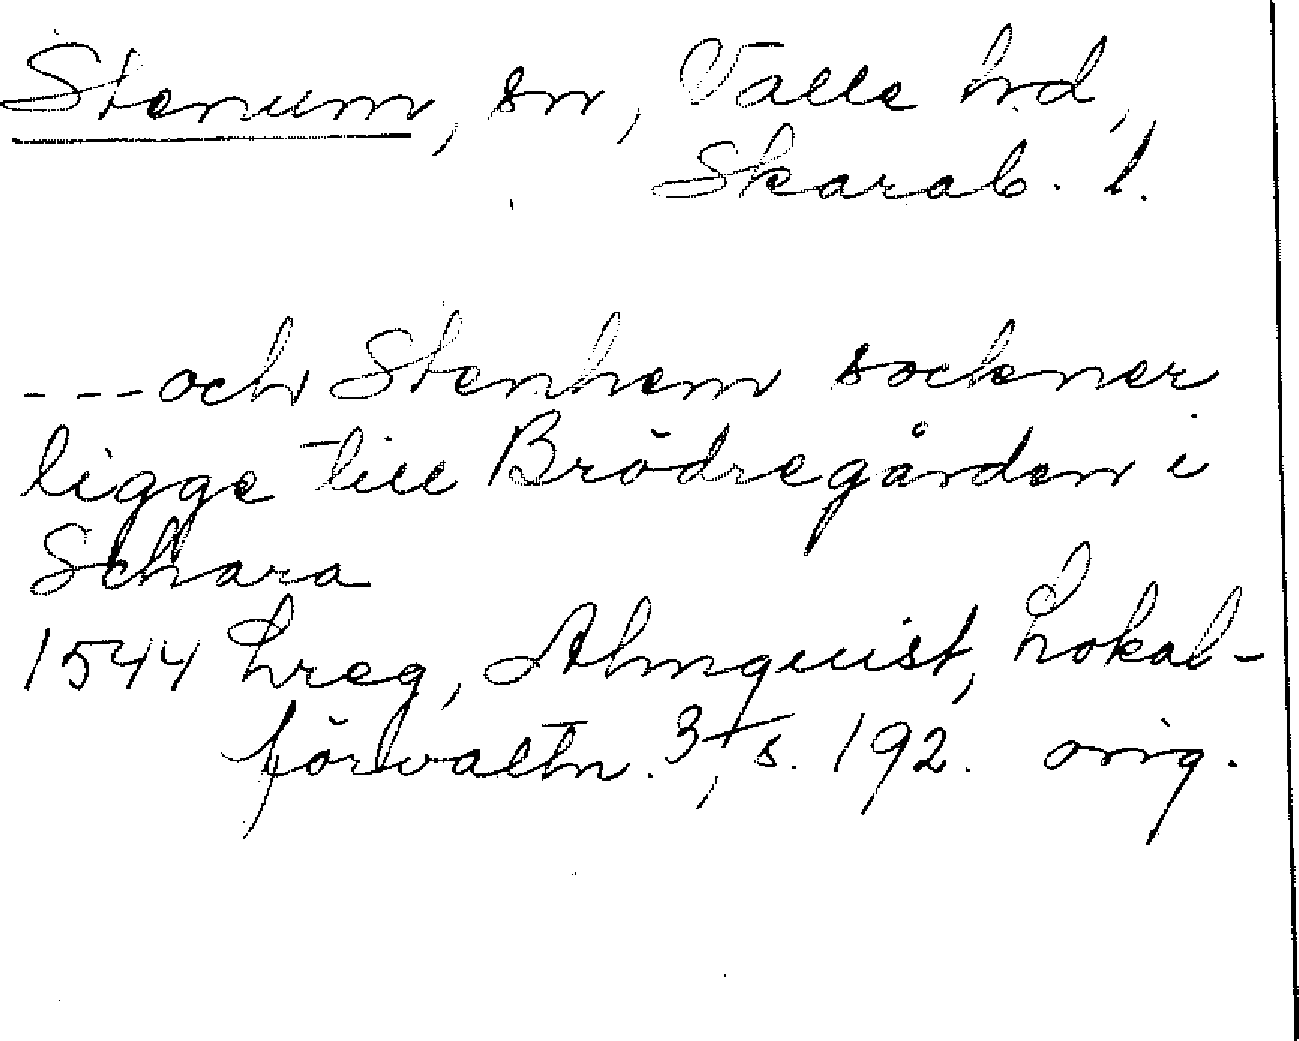 Stenum, sn, Valle hd,
Skarab. l.
---och Stenhem sockner
ligge till Brödregården i
Schara
1544 Lreg, Almquist, Lokal-
förvaltn. 3, s. 192. orig.